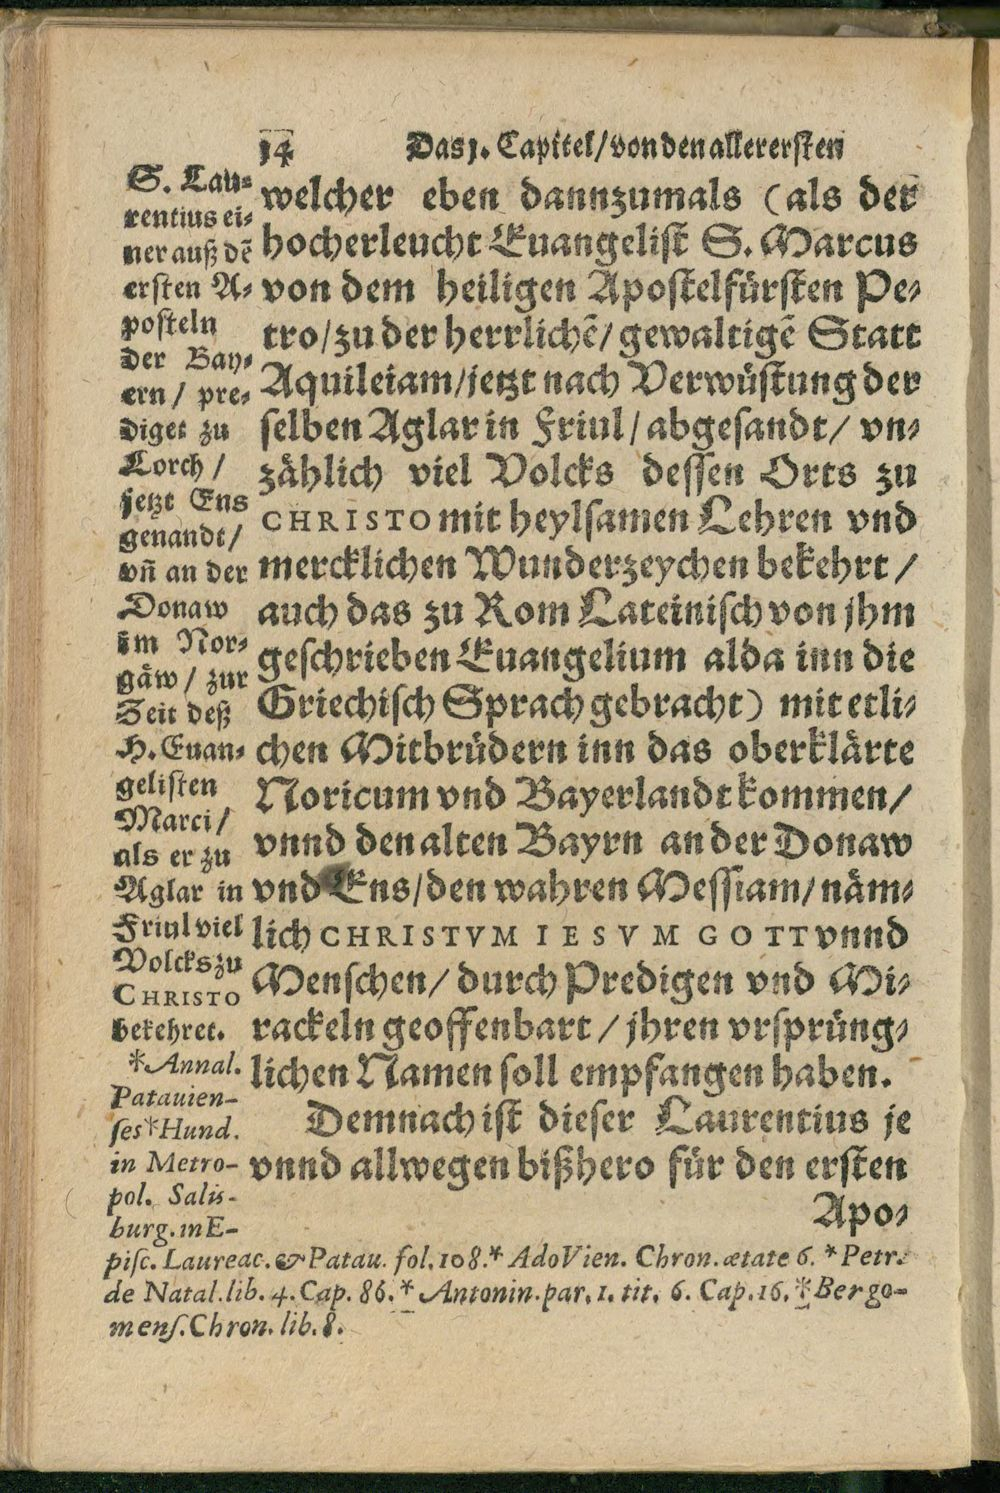 14 Das j. Capitel/ von den allerersten
welcher eben dannzumals (als der
hocherleucht Euangelist S. Marcus
von dem heiligen Apostelfürsten Pe-
tro/ zu der herrlichẽ/ gewaltigẽ Statt
Aquileiam/ jetzt nach Verwüstung der
selben Aglar in Friul/ abgesandt/ vn-
zählich viel Volcks dessen Orts zu
CHRISTO mit heylsamen Lehren vnd
mercklichen Wunderzeychen bekehrt/
auch das zu Rom Lateinisch von jhm
geschrieben Euangelium alda inn die
Griechisch Sprach gebracht) mit etli-
chen Mitbrüdern inn das oberklärte
Noricum vnd Bayerlandt kommen/
vnnd den alten Bayrn an der Donaw
vnd Ens/ den wahren Messiam/ näm-
lich CHRISTVM IESVM GOTT vnnd
Menschen/ durch Predigen vnd Mi-
rackeln geoffenbart/ jhren vrsprüng-
lichen Namen soll empfangen haben.
Demnach ist dieser Laurentius je
vnnd allwegen bißhero für den ersten
Apo-
S. Lau-
rentius ei-
ner auß dẽ
ersten A-
posteln
der Bay-
ern/ pre-
diget zu
Lorch/
jetzt Ens
genandt/
vñ an der
Donaw
im Nor-
gäw/ zur
Zeit deß
H. Euan-
gelisten
Marci/
als er zu
Aglar in
Friul viel
Volcks zu
CHRISTO
bekehret.
*Annal.
Patauien-
ses*Hund.
in Metro-
pol. Salis-
burg. in E-
pisc. Laureac. & Patau. fol. 108.* Ado Vien. Chron. ætate 6. * Petr.
de Natal. lib. 4. Cap. 86. * Antonin. par. 1. tit. 6. Cap. 16. * Bergo-
mens. Chron. lib. 8.